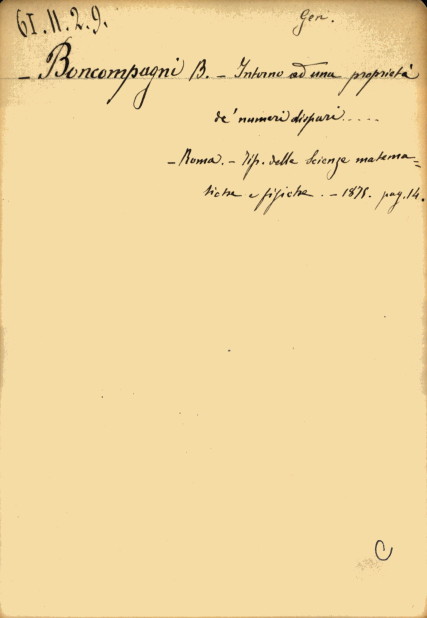 61.11.2.9.
Gen.
- Boncompagni B. - Intorno ad una proprietà
de' numeri dispari.....
- Roma. - Tip. delle Scienze matema=
tiche e fisiche. - 1875. pag. 14.
C